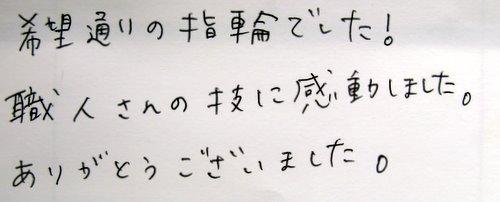 希望通りの指輪でした!
職人さんの技に感動しました。
ありがとうございました。